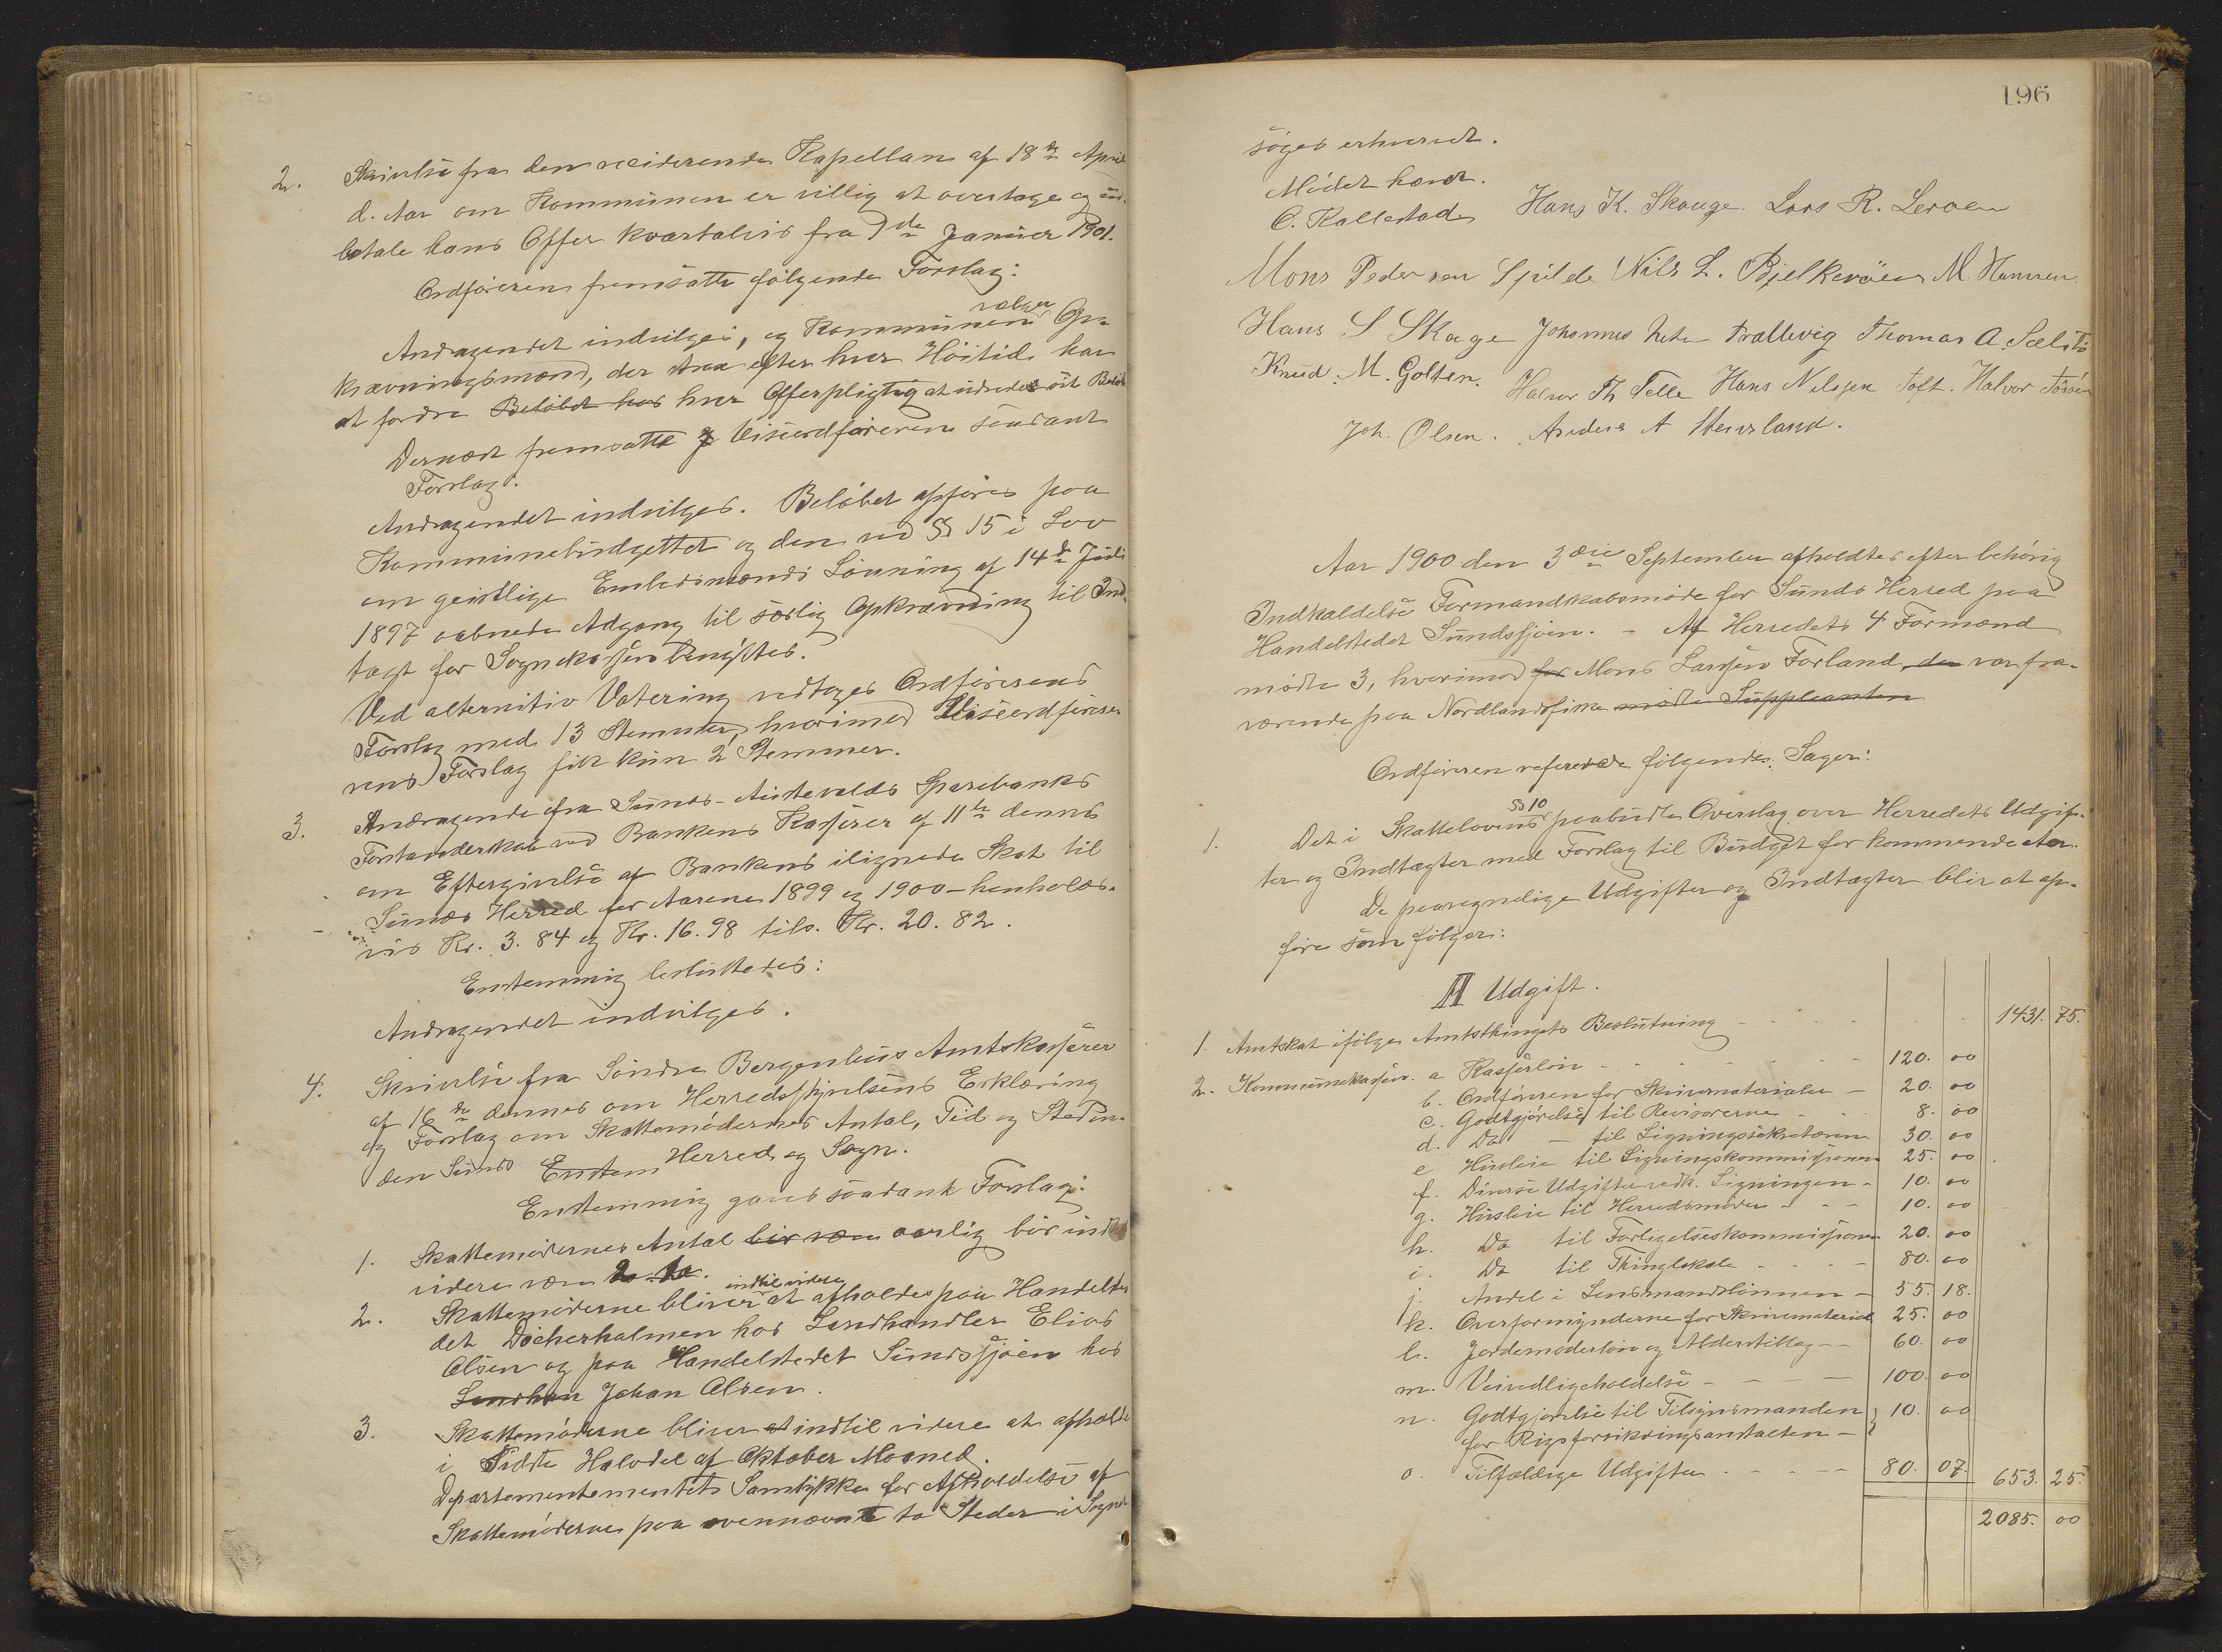 2. Skrivelse fra den residerende Kapellan af 18de April
d. Aar om Kommunen er villig at overtage og ud-
betale hans Offer kvartalvis fra 1ste Januar 1901.
Ordføreren fremsatte følgende Forslag:
Andragendet indvilges, og Kommunen vælger Op-
krævningsmænd, der strax efter hver Høitid har
at fordre Beløbet hos hver Offerpligtig at udrede sit Beløb
Dernæst fremsatte Viseordføreren saadant
Forslag:
Andragendet indvilges. Beløbet opføres paa
Kommunebudgettet og den ved §§ 15 i Lov
om geistlige Embedsmænds Lønning af 14de Juli
1897 aabnede Adgang til særlig Opkrævning til Ind-
tægt for Sognekassen benyttes.
Ved alternativ Votering vedtoges Ordførerens
Forslag med 13 Stemmer, hvorimod Viseordføre-
rens Forslag fik kun 2 Stemmer.
3. Andragende fra Sunds-Austevolds Sparebanks
Forstanderskab ved Bankens Kasserer af 11te dennes
om Eftergivelse af Bankens ilignede Skat til
Sunds Herred for Aarene 1899 og 1900 - henholds-
vis Kr. 3.84 og Kr. 16.98 tils. Kr. 20.82.
Enstemmig besluttedes:
Andragendet indvilges.
4. Skrivelse fra Søndre Bergenhus Amtskasserer
af 16de dennes om Herredsstyrelsens Erklæring
og Forslag om Skattemødernes Antal, Tid og Sted in-
den Sunds Enstem Herred og Sogn.
Enstemmig gaves saadant Forslag:
1. Skattemødernes Antal bør være aarlig bør indtil
videre være 2 to.
2. Skattemøderne bliver indtil videre at afholdes paa Handelste-
det Døcherholmen hos Landhandler Elias
Olsen og paa Handelstedet Sundssjøen hos
Landhan Johan Olsen.
3. Skattemøderne bliver at indtil videre at afholde
i Sidste Halvdel af Oktober Maaned.
Departementementets Samtykke for Afholdelse af
Skattemøderne paa ovennævnte to Steder i Sogne
196
søges erhvervet.
Mødet hævet.
O. Kallestad Hans K. Skauge Lars R. Lerøen
Mons Pedersen Spilde Nils L. Bjelkerøen M. Hansen
Hans S Skage Johannes Trallevig Thomas A. Sælstø
Knud M. Golten. Halvor Th Telle Hans Nilssen Toft. Halvor
Joh. Olsen. Anders A Steinsland.
Aar 1900 den 3die September afholdtes efter behørig
Indkaldelse Formandskabsmøde for Sunds Herred paa
Handelstedet Sundssjøen. - Af Herredets 4 Formænd
mødte 3, hvorimod for Mons Larssen Forland, der var fra-
værende paa Nordlandsfiske mødte Suppleanten
Ordføreren refererede følgende Sager:
1. Det i Skattelovens §§ 10 paabudte Overslag over Herredets Udgif-
ter og Indtægter med Forslag til Budget for kommende Aar.
De paaregnelige Udgifter og Indtægter blir at op-
føre som følger:
A Udgift.
1. Amtskat ifølge Amtsthingets Beslutning - - - 1431. 75.
2. Kommunekassen. a Kasserløn - - - 120. 00
b. Ordføreren for Skrivematerialer - 20. 00
c. Godtgjørelse til Revisorerne - - 8. 00
d. Do - til Ligningssekretæren 30. 00
e Husleie til Ligningskommissionen 25. 00
f. Diverse Udgifter vedk. Ligningen - 10. 00
g. Husleie til Herredsmøder - - - 10. 00
h. Do til Forligelseskommissionen 20. 00
i. Do til Thinglokale - - - 80. 00
j. Andel i Lensmandslønnen - 55. 18.
k. Overformynderne for Skrivemateriel 25. 00
l. Jordemoderløn og Alderstillæg - - 60. 00
m. Veivedligeholdelse - - - 100. 00
n. Godtgjørelse til Tilsynsmanden 10. 00
for Rigsforsikringsanstalten -
o. Tilfældige Udgifter - - - 80. 07. 653. 25.
2085. 00